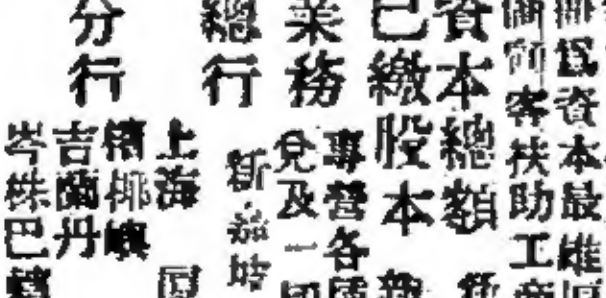 資本最雄
客扶助工
資本總額
已繳股本
業務
專營各
兌及一切
總行
新加坡
分行
上海
檳榔嶼
吉蘭丹
峇株巴轄